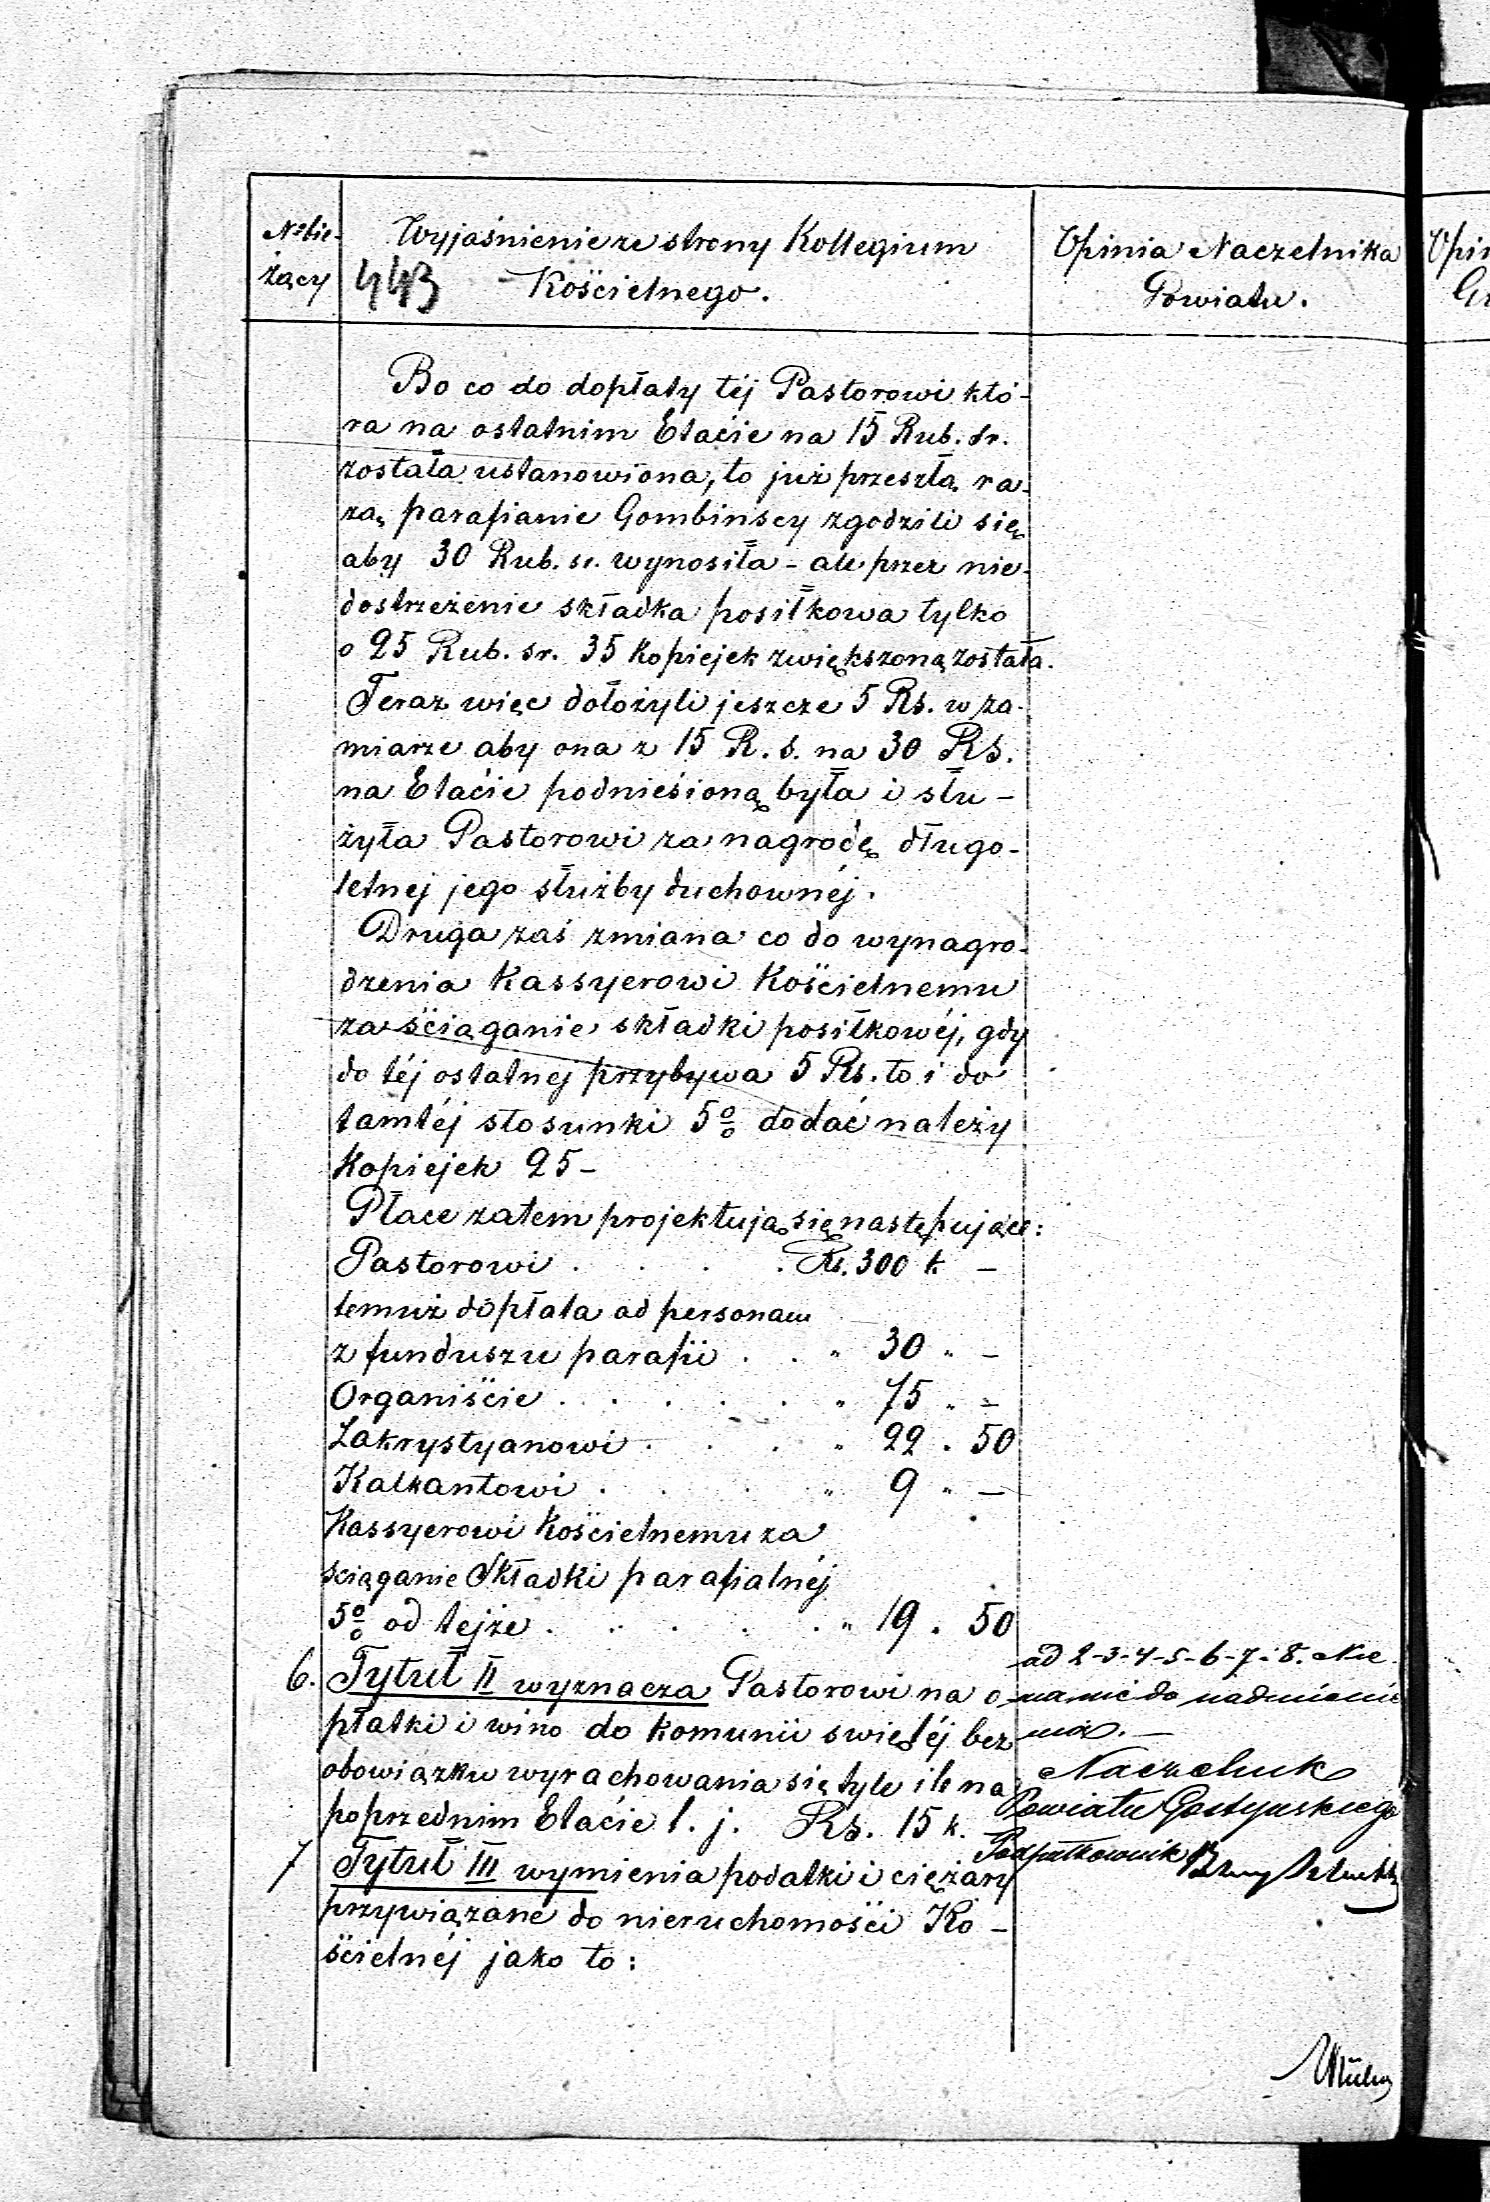 No bie-
żący
Wyjaśnienie ze strony Kollegium
443 Kościelnego.
Opinia Naczelnika
Powiatu.
Opin
Gr
Bo co do dopłaty téj Pastorowi któ-
ra na ostatnim Etacie na 15 Rub. sr.
została ustanowiona, to już przeszłą ra-
zą parafianie Gombinscy zgodzili się
aby 30 Rub. sr. wynosiła - ale przez nie-
dostrzeżenie składka posiłkowa tylko
o 25 Rub. sr. 35 Kopiejek zwiększoną została.
Teraz więc dołożyli jeszcze 5 Rs. w za-
miarze aby ona z 15 R. s. na 30 RS.
na Etacie podniesioną była i słu-
żyła Pastorowi za nagrodę długo-
letnej jego służby duchownéj.
Druga zaś zmiana co do wynagro-
dzenia Kassyerowi Kościelnemu
za ściąganie składki posiłkowéj, gdy
do téj ostatnej przybywa 5 Rs. to i do
tamtéj stosunki 5% dodać należy
Kopiejek 25 -
Płace zatem projektują się następujące:
Pastorowi . . . . Rs. 300 k. -
temuż dopłata ad personam
z funduszu parafii . . " 30 " -
Organiście . . . . . " 75 " -
Zakrystyanowi . . . " 22 . 50
Kalkantowi . . . " 9 " -
Kassyerowi Kościelnemu za
ściąganie Składki parafialnéj
5% od tejże . . . . . " 19 . 50
6. Tytuł II wyznacza Pastorowi na o-
płatki i wino do komunii swiętéj bez
obowiązku wyrachowania się tyle ile na
poprzednim Etacie t. j. Rs. 15 k.
7 Tytuł III wymienia podatki i ciężary
przywiązane do nieruchomości Ko-
ścielnéj jako to:
ad 2-3-4-5-6-7-8. Nie
ma nic do nadmienie
nia. -
Naczelnik
Powiatu Gostyńskiego
Podpułkownik